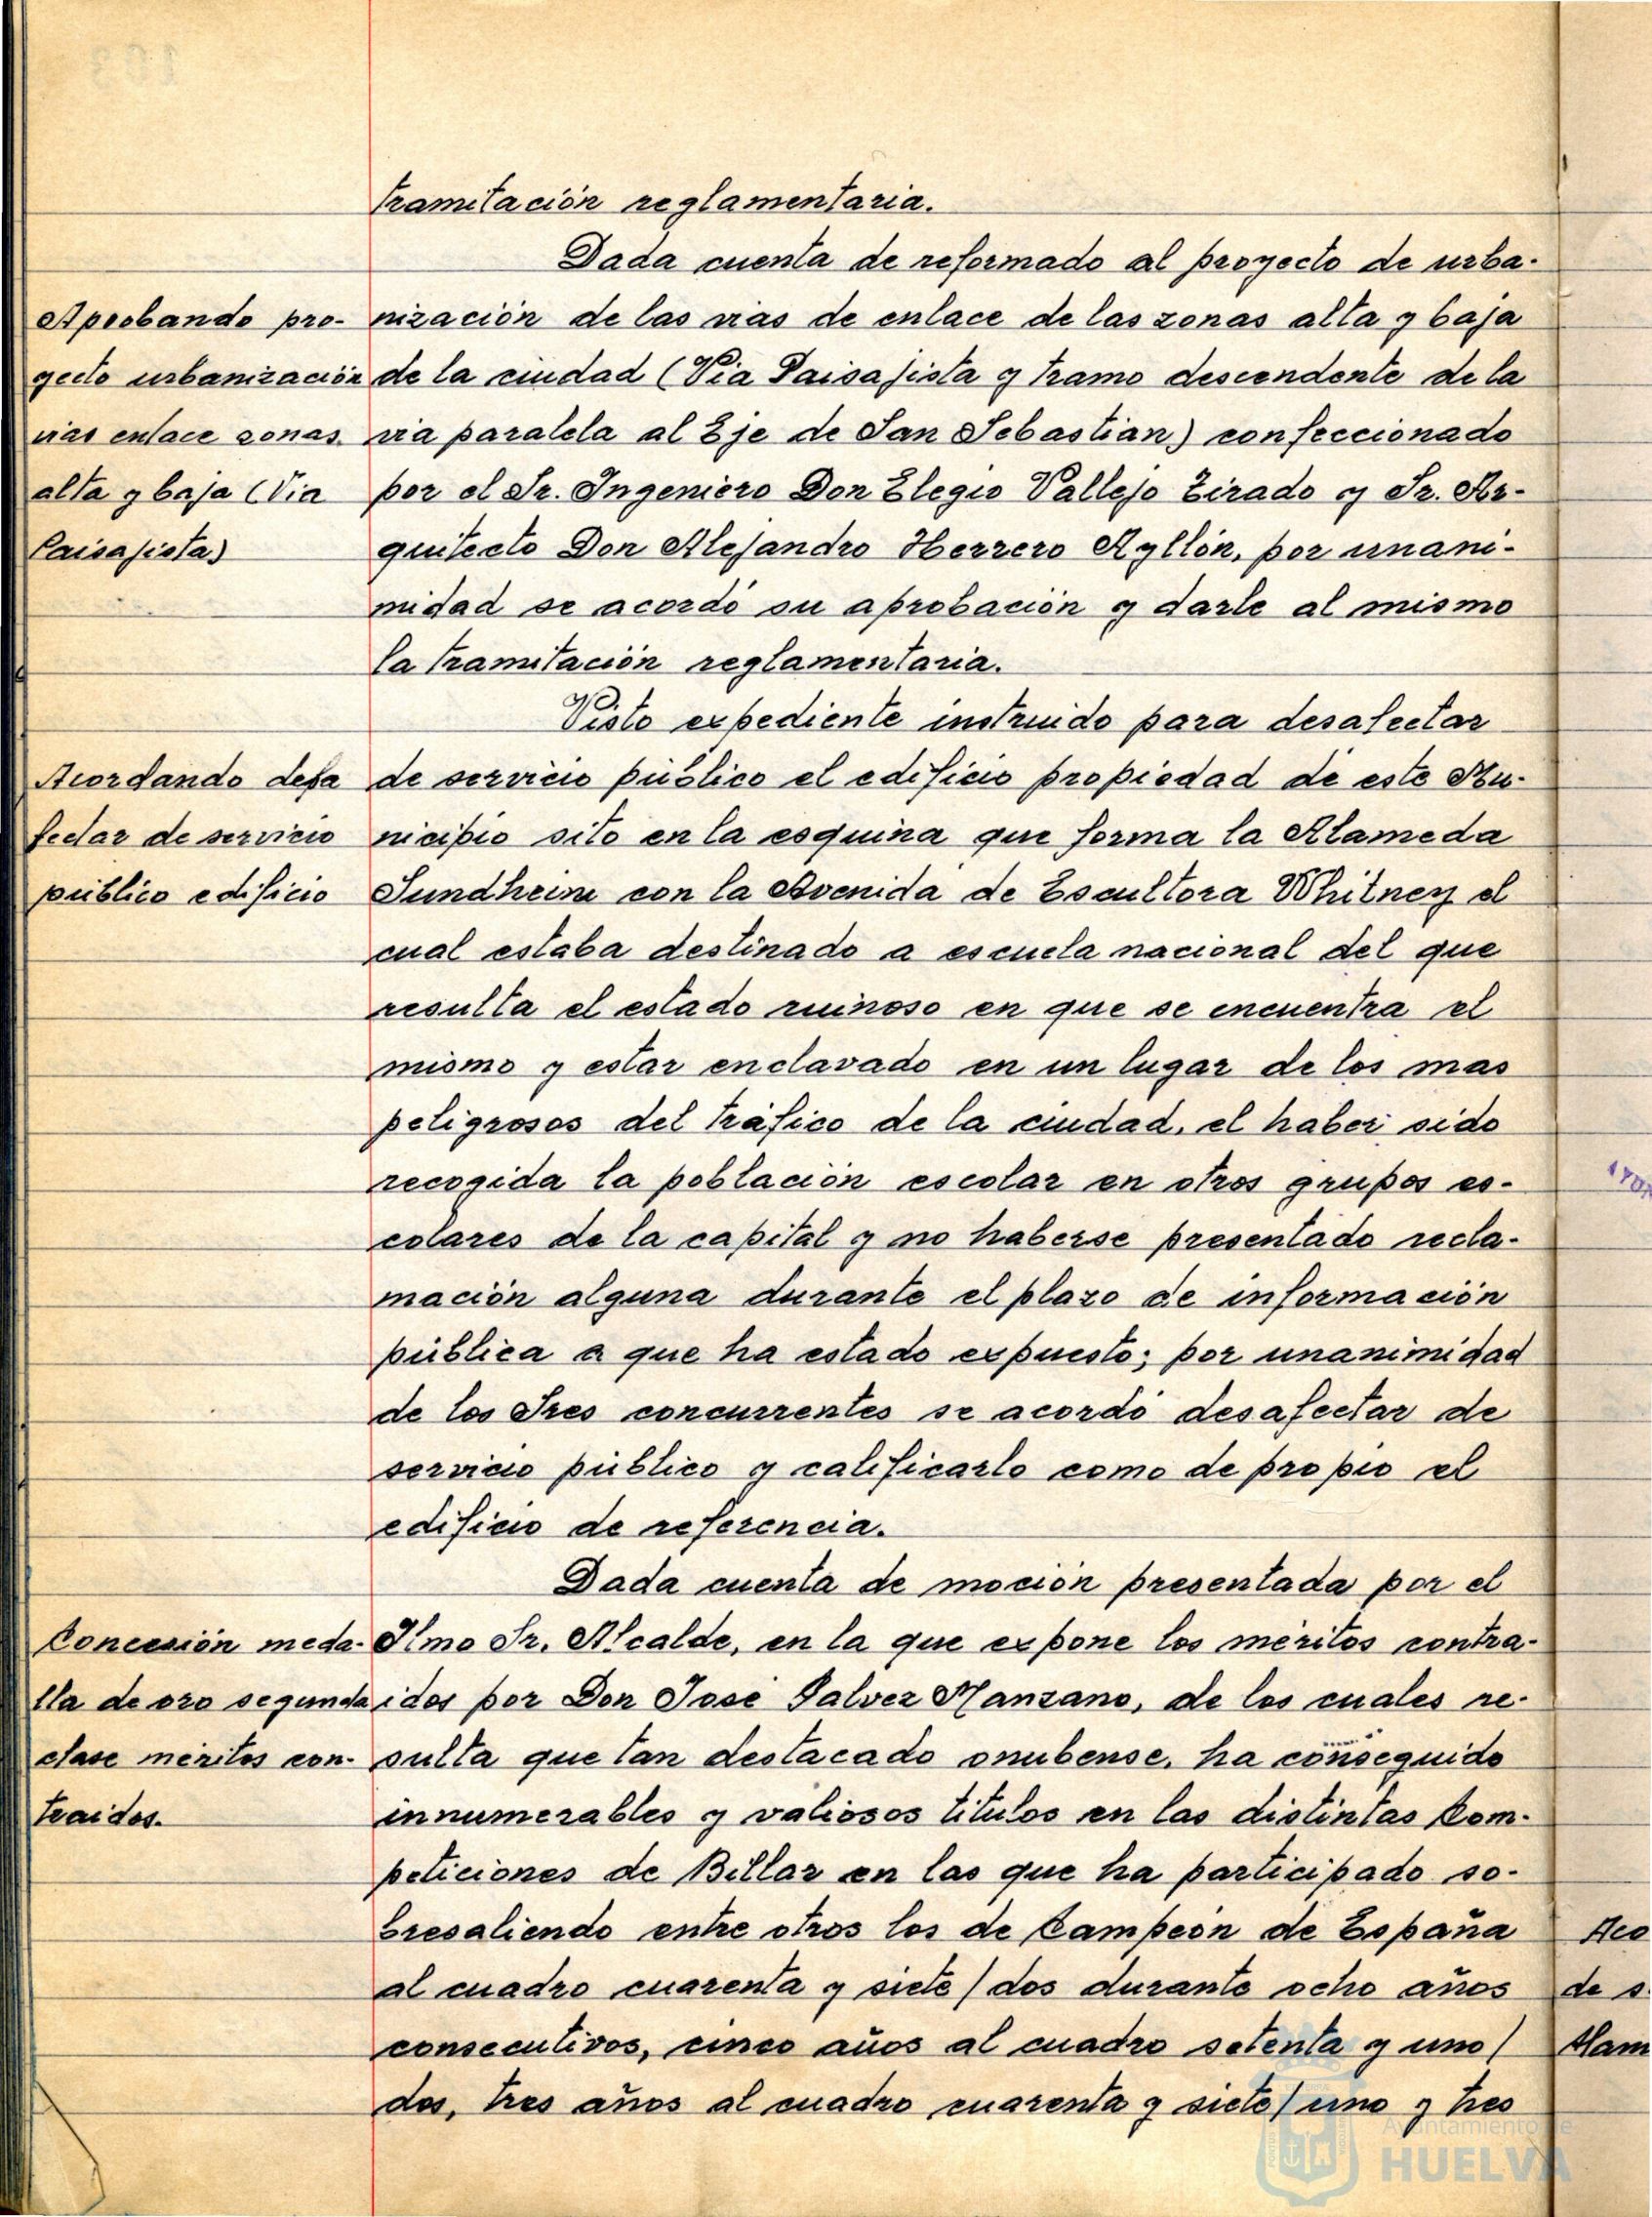 tramitación reglamentaria.
Dada cuenta de reformado al proyecto de urba-
Aprobando pro- nización de las vias de enlace de las zonas alta y baja
yecto urbanización de la ciudad (Via Paisajista y tramo descendente de la
vias enlace zonas via paralela al Eje de San Sebastian) confeccionado
alta y baja (Via por el Sr. Ingeniero Don Elegio Vallejo Zirado y Sr. Ar-
Paisajista) quitecto Don Alejandro Herrero Ayllón, por unani-
midad se acordó su aprobación y darle al mismo
la tramitación reglamentaria.
Visto expediente instruido para desafectar
Acordando desa de servicio público el edificio propiedad de este Mu-
fectar de servicio nicipio sito en la esquina que forma la Alameda
público edificio Sundheim con la Avenida de Escultora Whitney el
cual estaba destinado a escuela nacional del que
resulta el estado ruinoso en que se encuentra el
mismo y estar enclavado en un lugar de los mas
peligrosos del tráfico de la ciudad, el haber sido
recogida la población escolar en otros grupos es-
colares de la capital y no haberse presentado recla-
mación alguna durante el plazo de información
pública a que ha estado expuesto; por unanimidad
de los Sres concurrentes se acordó desafectar de
servicio público y calificarlo como de propio el
edificio de referencia.
Dada cuenta de moción presentada por el
Concesión meda- Ilmo Sr. Alcalde, en la que expone los méritos contra-
lla de oro segunda idos por Don José Galvez Manzano, de los cuales re-
clase méritos con- sulta que tan destacado onubense, ha conseguido
traidos. innumerables y valiosos títulos en las distintas Com-
peticiones de Billar en las que ha participado so-
bresaliendo entre otros los de Campeón de España
al cuadro cuarenta y siete/dos durante ocho años
consecutivos, cinco años al cuadro setenta y uno/
dos, tres años al cuadro cuarenta y siete/uno y tres
Aco
de s
Mam
Ayuntamiento de
HUELVA